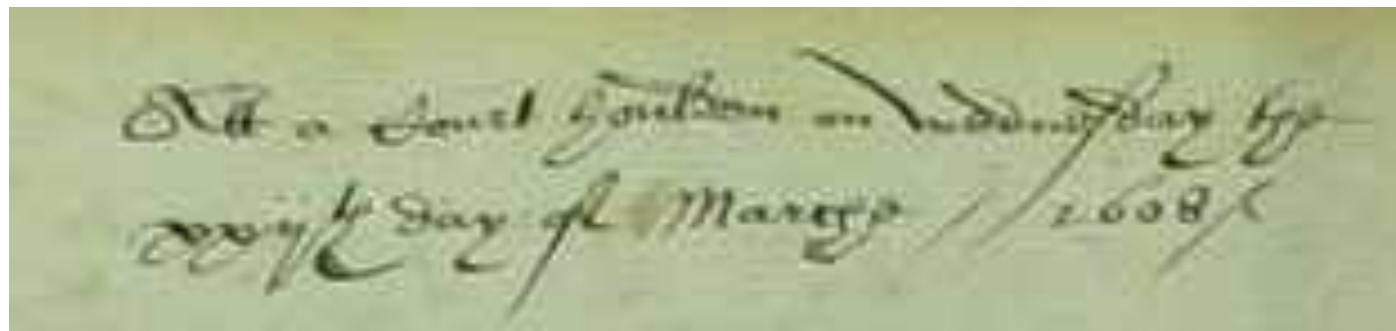 Att a Court houlden on wednesday the
xxijth day of Marche // 1608/